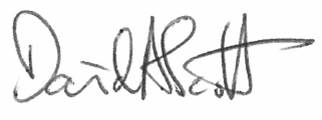 David A Scott